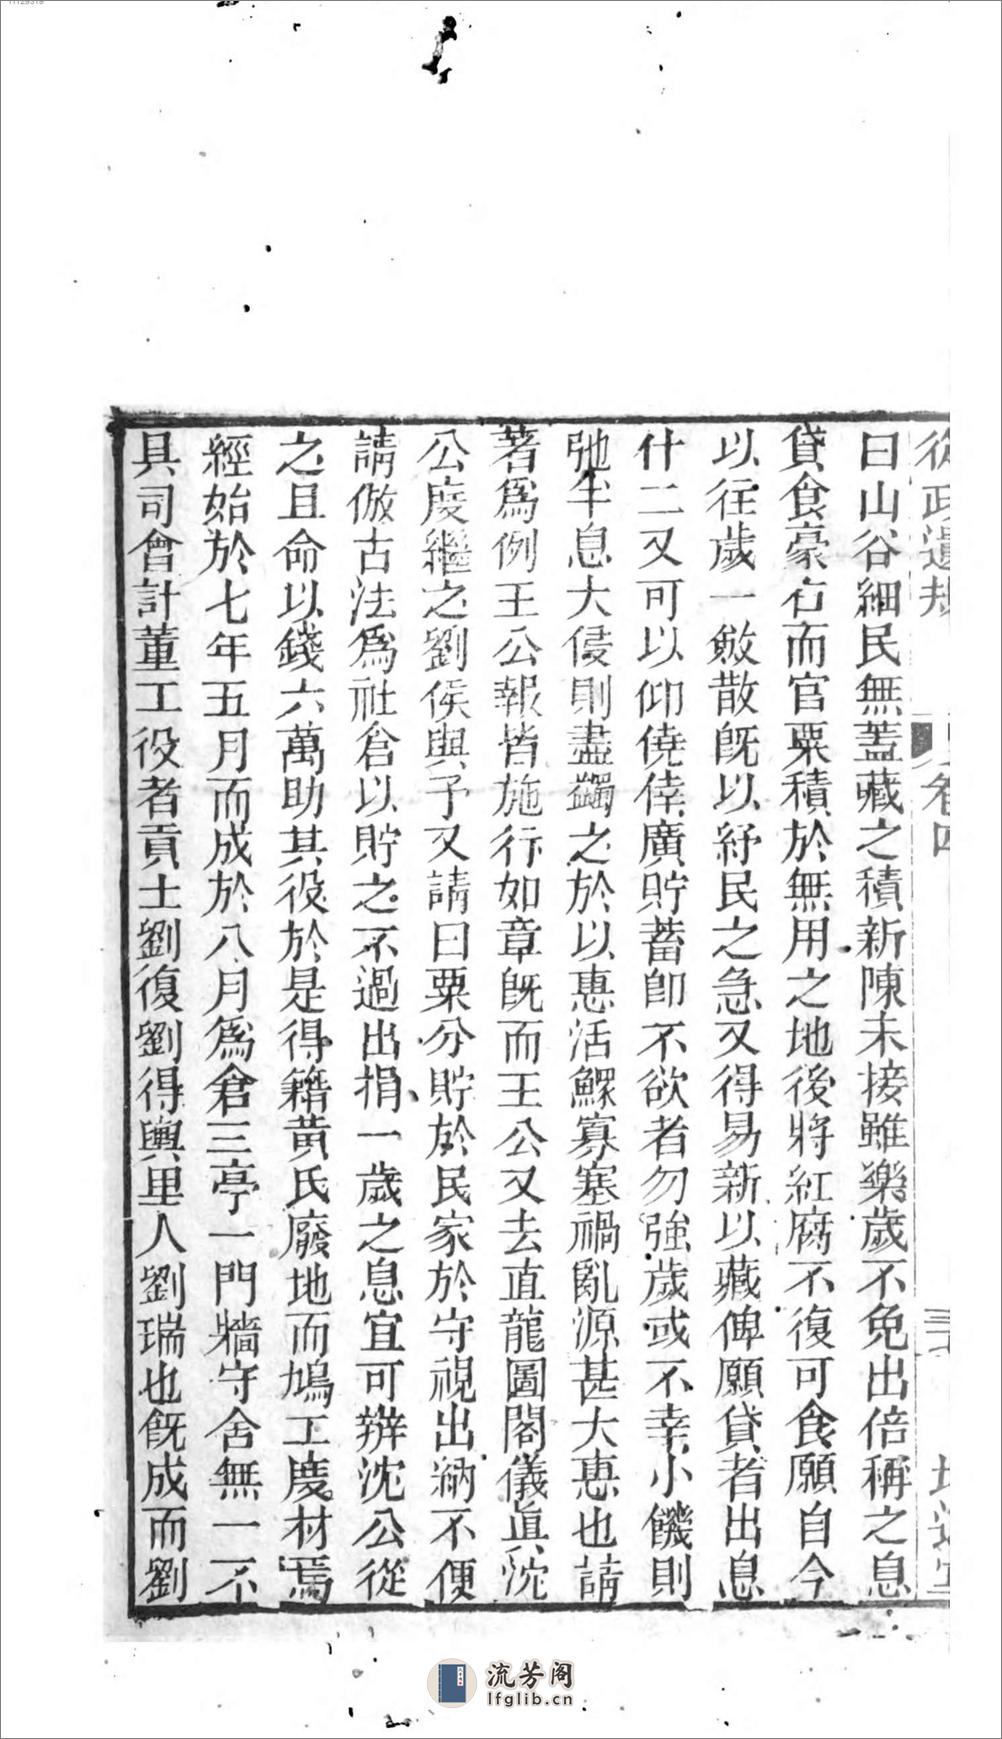 11129319
從政遺規 卷四
曰山谷細民無蓋藏之積新陳未接雖樂歲不免出倍稱之息
貸食豪右而官粟積於無用之地後將紅腐不復可食願自今
以往歲一斂散旣以紓民之急又得易新以藏俾願貸者出息
什二又可以仰僥倖廣貯蓄卽不欲者勿強歲或不幸小饑則
弛半息大侵則盡蠲之於以惠活鰥寡塞禍亂源甚大惠也請
著爲例王公報皆施行如章旣而王公又去直龍圖閣儀眞沈
公度繼之劉侯與予又請曰粟分貯於民家於守視出納不便
請倣古法爲社倉以貯之不過出捐一歲之息宜可辨沈公從
之且命以錢六萬助其役於是得籍黃氏廢地而鳩工度材焉
經始於七年五月而成於八月爲倉三亭一門牆守舍無一不
具司會計董工役者貢士劉復劉得輿里人劉瑞也旣成而劉
流芳阁
lfglib.cn